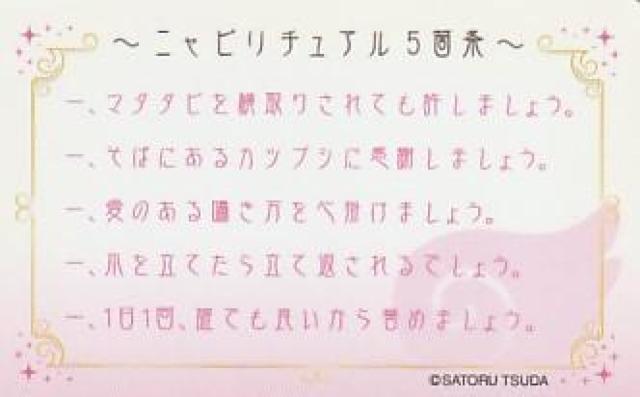 ～ニャピリチュアル5箇条～
一、マタタビを横取りされても許しましょう。
一、そばにあるカツブシに感謝しましょう。
一、愛のある囁き方を心掛けましょう。
一、爪を立てたら立て返されるでしょう。
一、1日1回、誰でも良いから誉めましょう。
©SATORU TSUDA